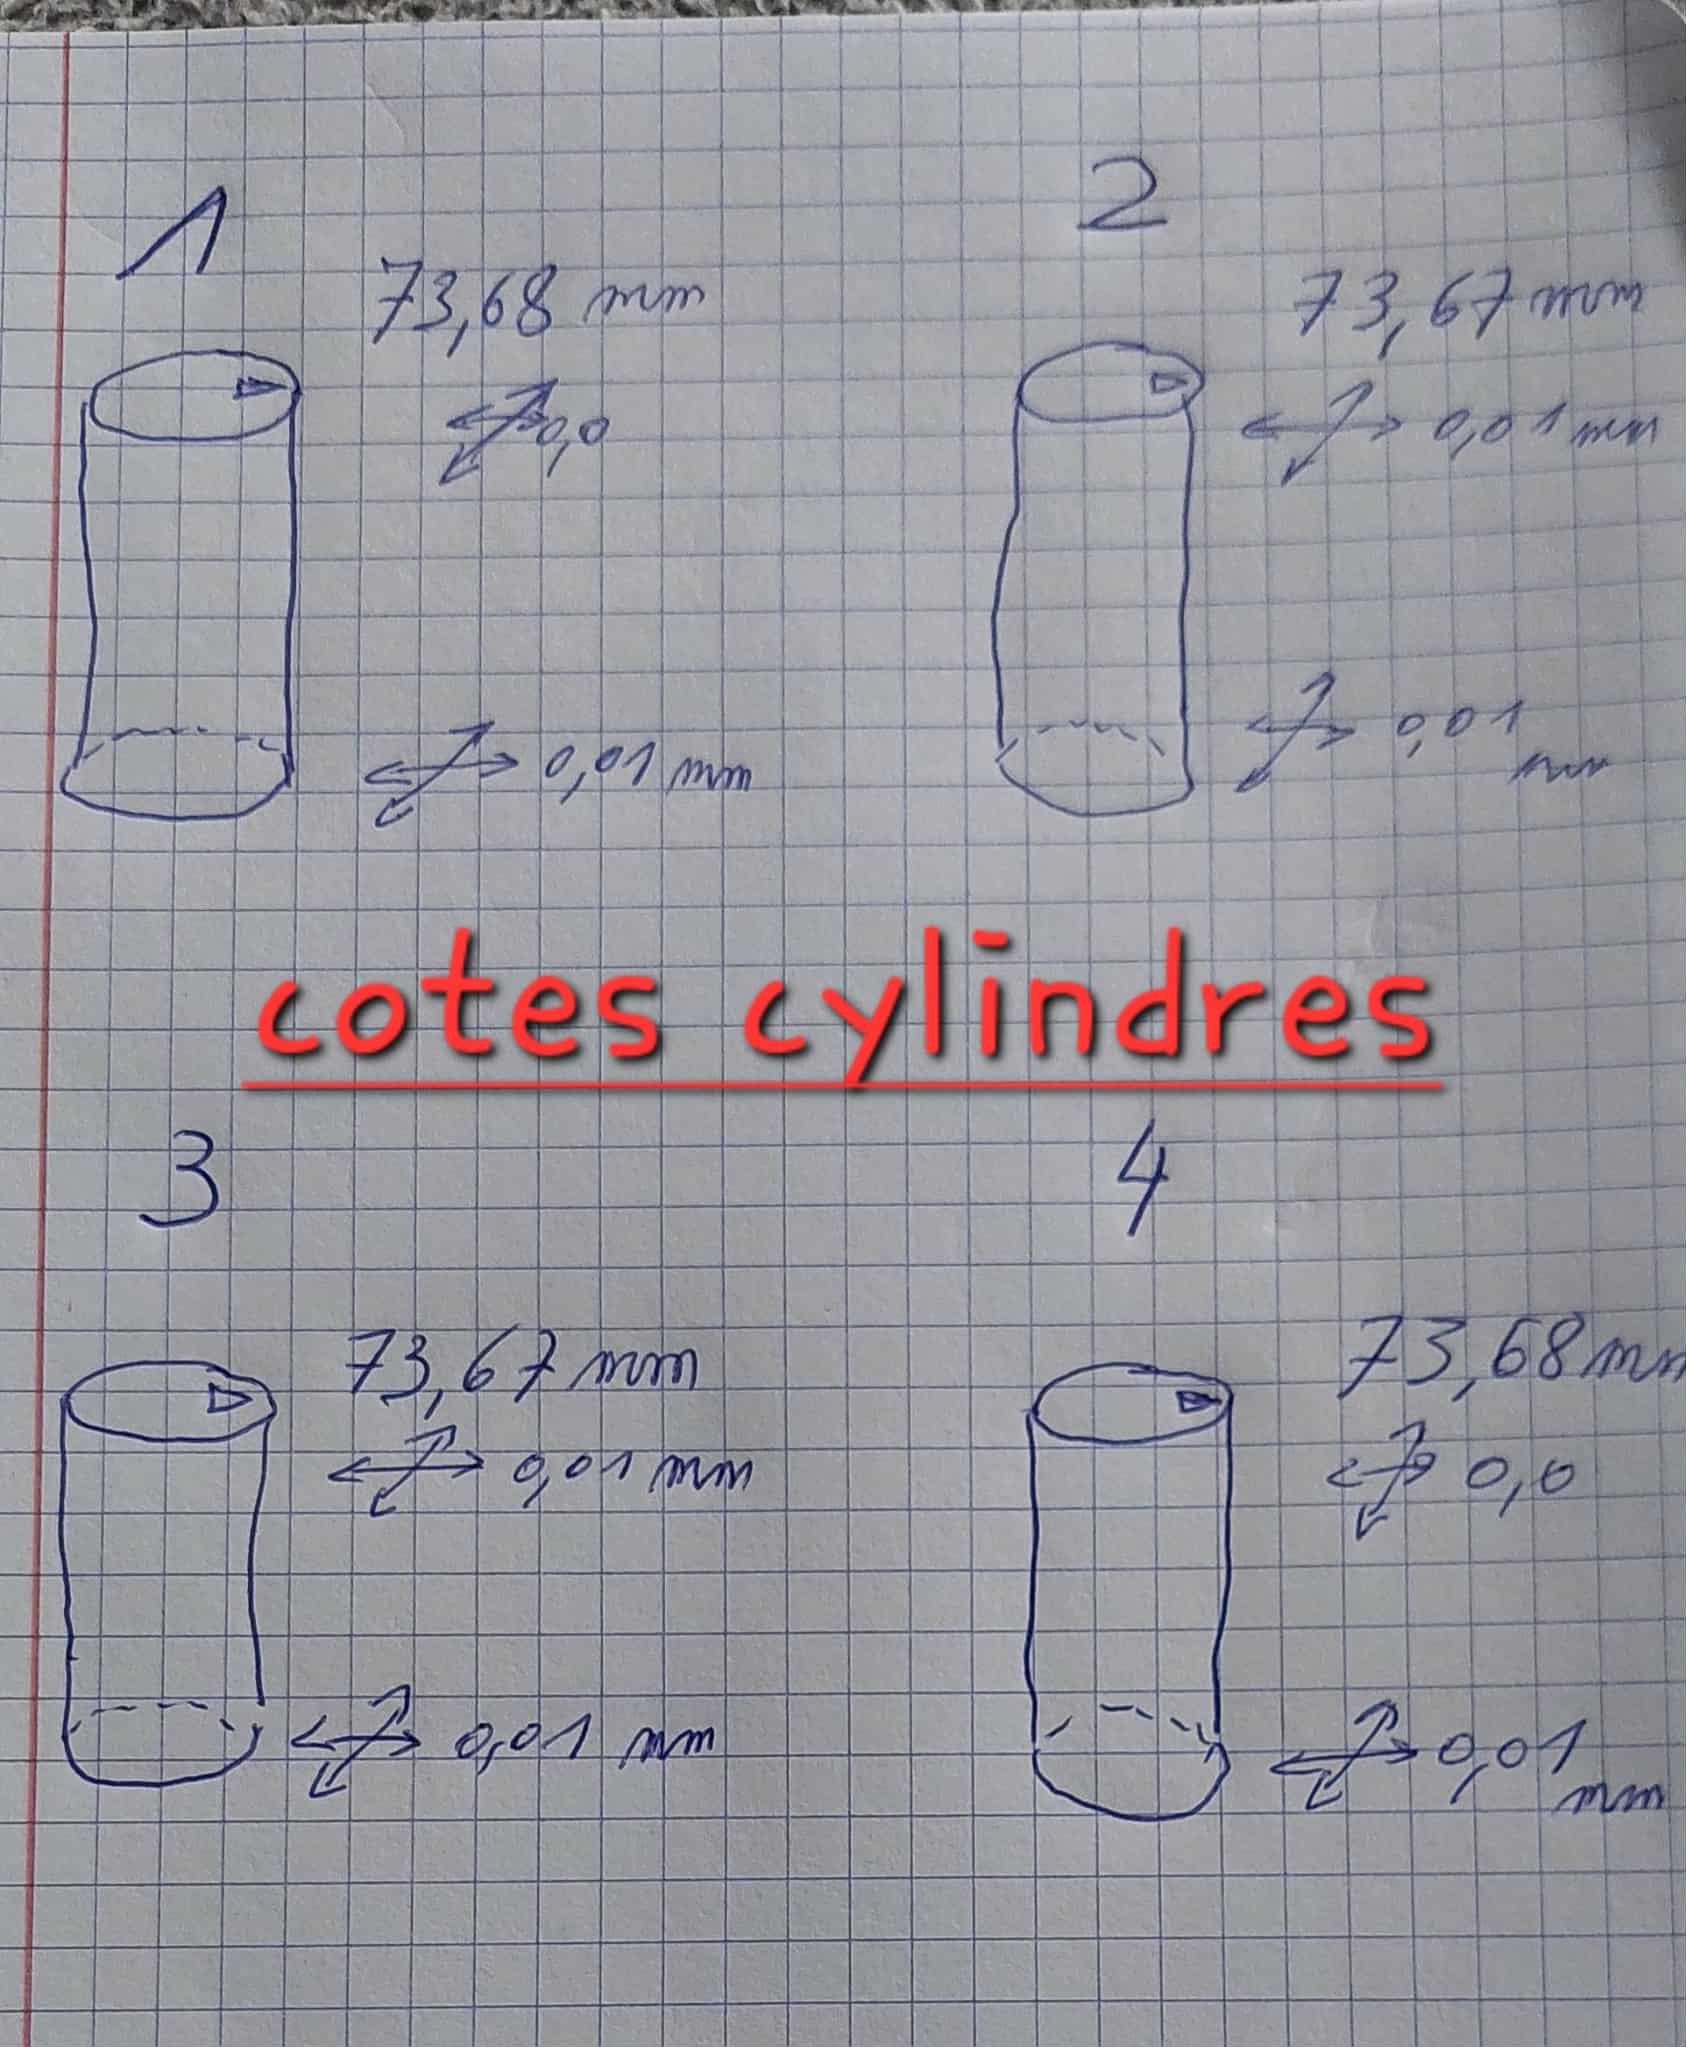 1
73,68 mm
0,0
0,01 mm
2
73,67 mm
0,01 mm
0,01
mm
cotes cylindres
3
73,67 mm
0,01 mm
0,01 mm
4
73,68 mm
0,0
0,01
mm